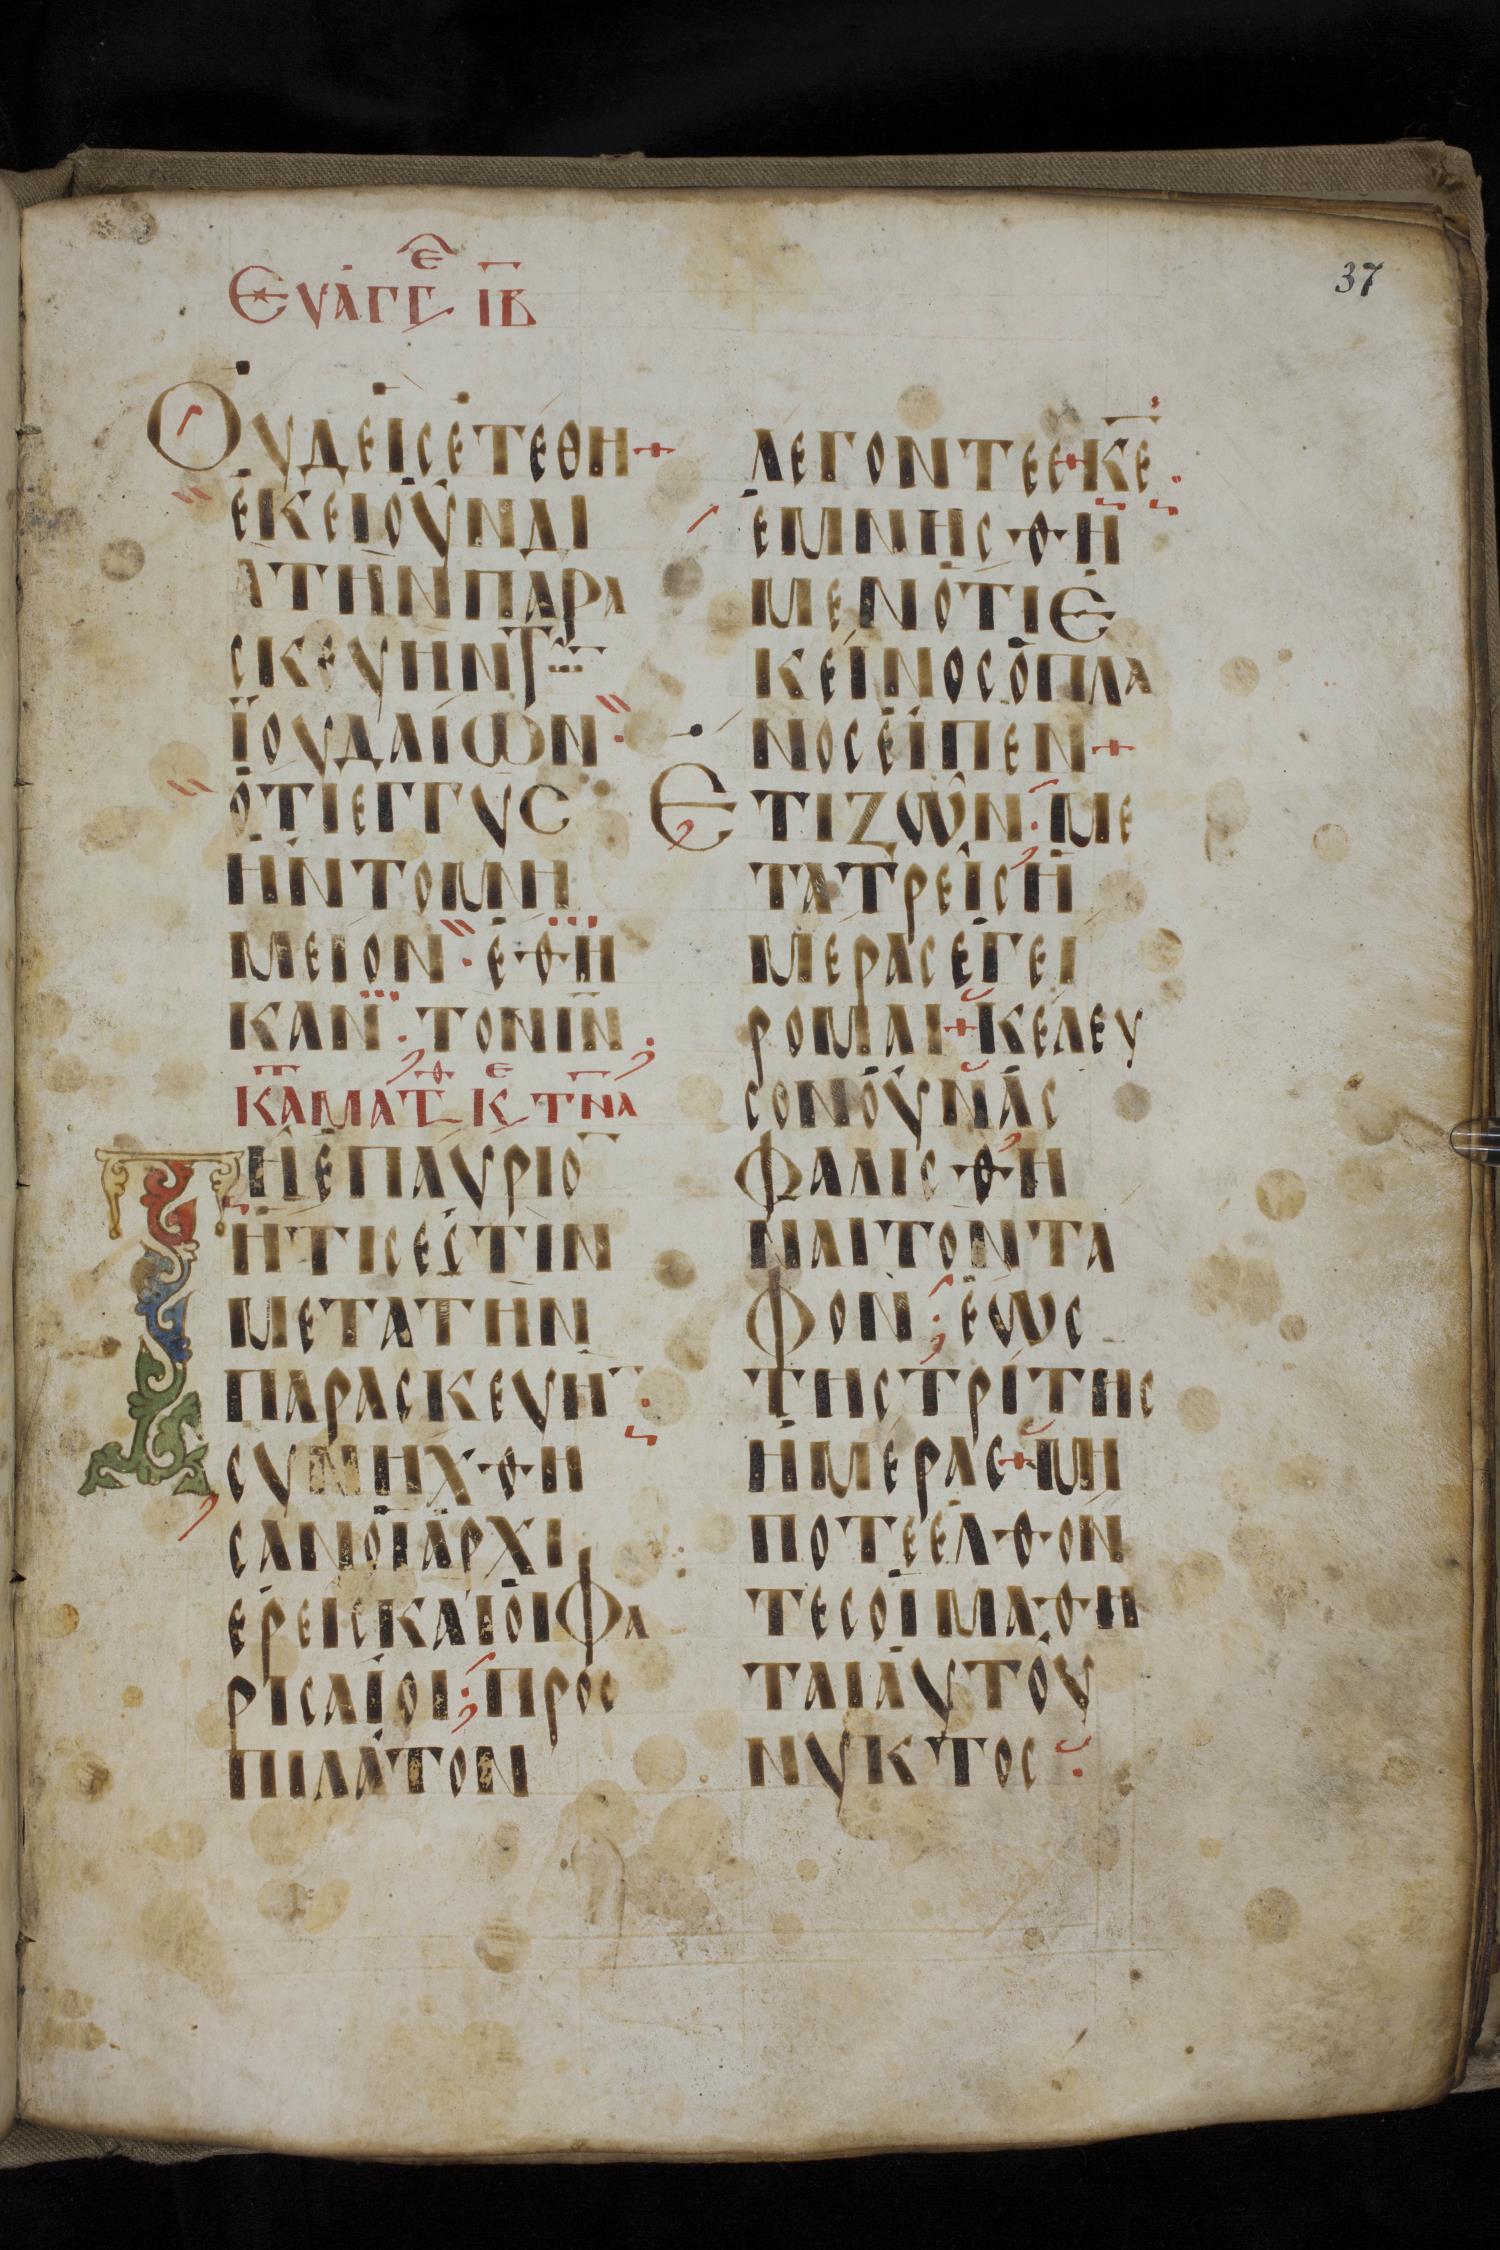 ΕΥΑΓΓ Ε ΙΒ
37
ΟΥΔΕΙCΕΤΕΘΗ+
ΕΚΕΙΟΥΝΔΙ
ΑΤΗΝΠΑΡΑ
CΚΕΥΗΝΤ
ΪΟΥΔΑΙΩΝ·
ΟΤΙΕΓΓΥC
ΗΝΤΟΜΝΗ
ΜΕΙΟΝ·ΕΘΗ
ΚΑΝ·ΤΟΝΙΝ·
ΚΑΜΑΤΘ Κ Ε ΤΝΑ
ΤΗΕΠΑΥΡΙΟ
ΗΤΙCΕCΤΙΝ
ΜΕΤΑΤΗΝ
ΠΑΡΑCΚΕΥΗ·
CΥΝΗΧΘΗ
CΑΝΟΙΑΡΧΙ
ΕΡΕΙCΚΑΙΟΙΦΑ
ΡΙCΑΙΟΙ·ΠΡΟC
ΠΙΛΑΤΟΝ
ΛΕΓΟΝΤΕC+ΚΕ·
ΕΜΝΗCΘΗ
ΜΕΝΟΤΙΕ
ΚΕΙΝΟCΟΠΛΑ
ΝΟCΕΙΠΕΝ+
ΕΤΙΖΩΝ·ΜΕ
ΤΑΤΡΕΙCΗ
ΜΕΡΑCΕΓΕΙ
ΡΟΜΑΙ+ΚΕΛΕΥ
CΟΝΟΥΝΑC
ΦΑΛΙCΘΗ
ΝΑΙΤΟΝΤΑ
ΦΟΝ·ΕΩC
ΤΗCΤΡΙΤΗC
ΗΜΕΡΑC+ΜΗ
ΠΟΤΕΕΛΘΟΝ
ΤΕCΟΙΜΑΘΗ
ΤΑΙΑΥΤΟΥ
ΝΥΚΤΟC·